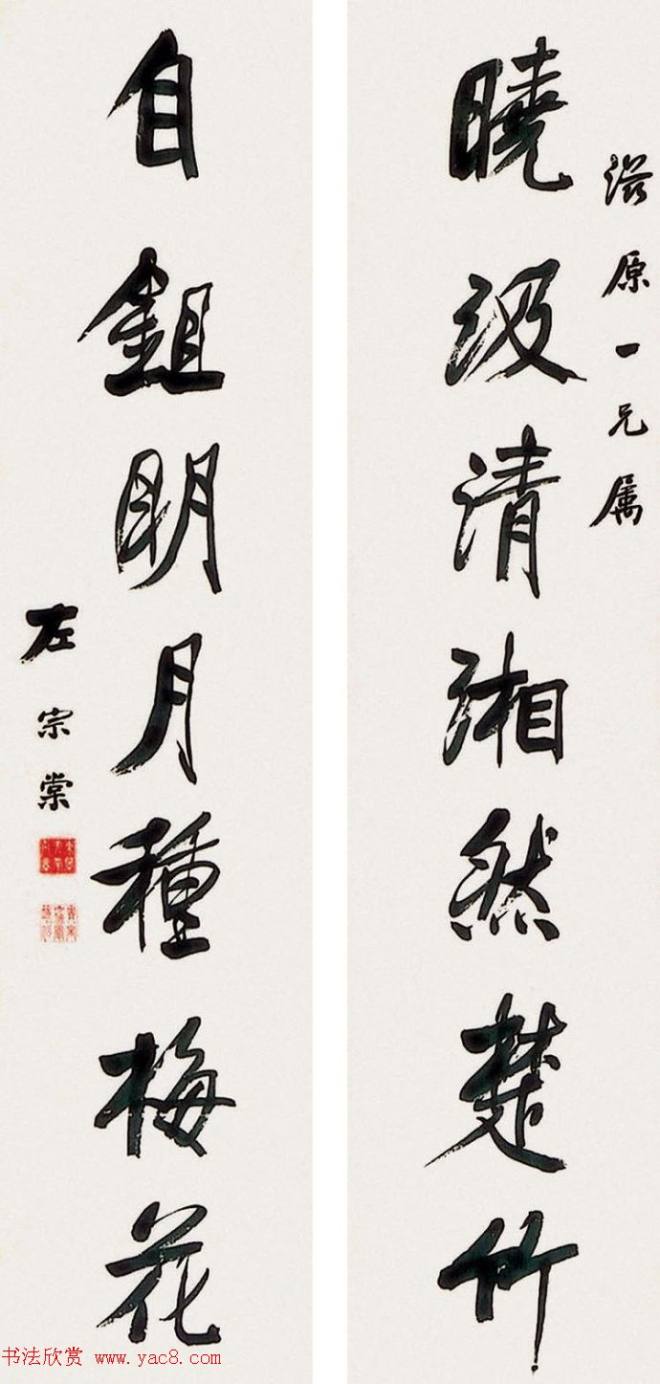 曉汲清湘然楚竹
浴原一兄属
自鉏明月種梅花
左宗棠
书法欣赏 www.yac8.com